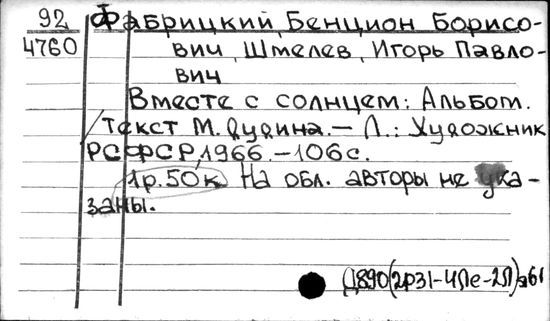 92
4760
Фабрицкий, Бенцион Борисо-
вич, Шмелев, Игорь Павло-
вич
Вместе с солнцем: Альбом.
/Текст М. Дудина.- Л.: Художник
РСФСР, 1966.-106с.
1р.50к На обл. авторы не ука-
заны.
Д890(2Р31-4Ле-2Л)я61